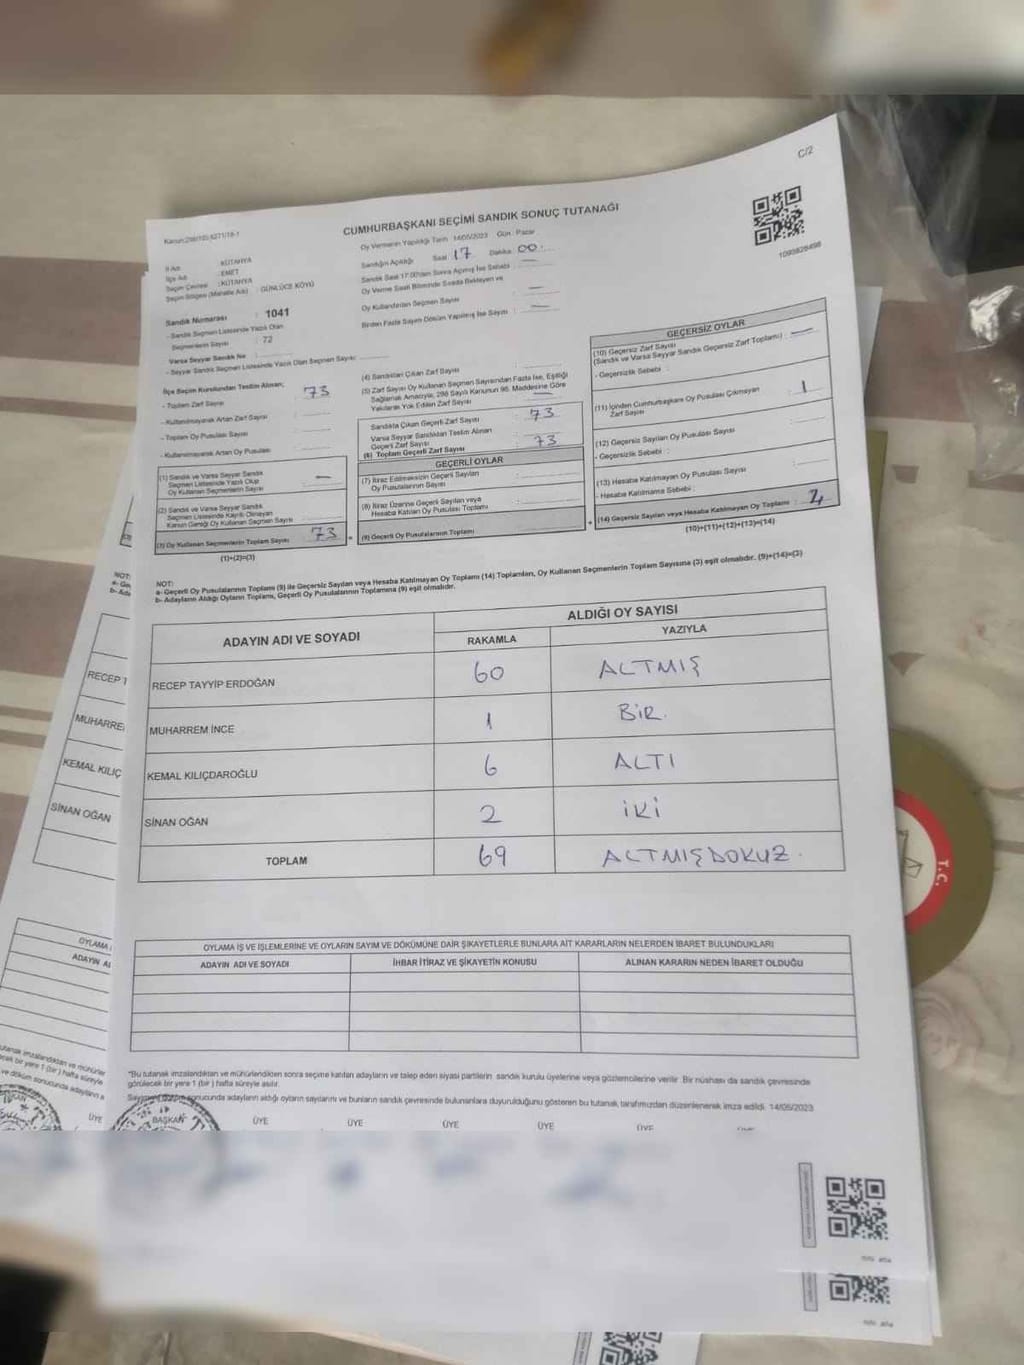 C/2
Kanun:298(105),6271/18-1
CUMHURBAŞKANI SEÇİMİ SANDIK SONUÇ TUTANAĞI
1093828498
İl Adı : KÜTAHYA
İlçe Adı : EMET
Seçim Çevresi : KÜTAHYA
Seçim Bölgesi (Mahalle Adı) : GÜNLÜCE KÖYÜ
Sandık Numarası : 1041
- Sandık Seçmen Listesinde Yazılı Olan
Seçmenlerin Sayısı : 72
Varsa Seyyar Sandık No :
- Seyyar Sandık Seçmen Listesinde Yazılı Olan Seçmen Sayısı:
İlçe Seçim Kurulundan Teslim Alınan;
- Toplam Zarf Sayısı 73
- Kullanılmayarak Artan Zarf Sayısı
- Toplam Oy Pusulası Sayısı
- Kullanılmayarak Artan Oy Pusulası
(1) Sandık ve Varsa Seyyar Sandık
Seçmen Listesinde Yazılı Olup
Oy Kullanan Seçmenlerin Sayısı
(2) Sandık ve Varsa Seyyar Sandık
Seçmen Listesinde Kayıtlı Olmayan
Kanun Gereği Oy Kullanan Seçmen Sayısı
(3) Oy Kullanan Seçmenlerin Toplam Sayısı 73
(1)+(2)=(3)
Oy Vermenin Yapıldığı Tarih : 14/05/2023 Gün : Pazar
Sandığın Açıldığı Saat 17 Dakika 00
Sandık Saat 17.00'den Sonra Açılmış İse Sebebi :
Oy Verme Saati Bitiminde Sırada Bekleyen ve
Oy Kullandırılan Seçmen Sayısı :
Birden Fazla Sayım Döküm Yapılmış İse Sayısı :
(4) Sandıktan Çıkan Zarf Sayısı
(5) Zarf Sayısı Oy Kullanan Seçmen Sayısından Fazla İse, Eşitliği
Sağlamak Amacıyla; 298 Sayılı Kanunun 98. Maddesine Göre
Yakılarak Yok Edilen Zarf Sayısı
Sandıkta Çıkan Geçerli Zarf Sayısı : 73
Varsa Seyyar Sandıktan Teslim Alınan
Geçerli Zarf Sayısı
(6) Toplam Geçerli Zarf Sayısı : 73
GEÇERLİ OYLAR
(7) İtiraz Edilmeksizin Geçerli Sayılan
Oy Pusulalarının Sayısı
(8) İtiraz Üzerine Geçerli Sayılan veya
Hesaba Katılan Oy Pusulası Toplamı
(9) Geçerli Oy Pusulalarının Toplamı
GEÇERSİZ OYLAR
(10) Geçersiz Zarf Sayısı
(Sandık ve Varsa Seyyar Sandık Geçersiz Zarf Toplamı) :
- Geçersizlik Sebebi :
(11) İçinden Cumhurbaşkanı Oy Pusulası Çıkmayan
Zarf Sayısı : 1
(12) Geçersiz Sayılan Oy Pusulası Sayısı
- Geçersizlik Sebebi :
(13) Hesaba Katılmayan Oy Pusulası Sayısı
- Hesaba Katılmama Sebebi :
(14) Geçersiz Sayılan veya Hesaba Katılmayan Oy Toplamı :
(10)+(11)+(12)+(13)=(14)
NOT:
a- Geçerli Oy Pusulalarının Toplamı (9) ile Geçersiz Sayılan veya Hesaba Katılmayan Oy Toplamı (14) Toplamları, Oy Kullanan Seçmenlerin Toplam Sayısına (3) eşit olmalıdır. (9)+(14)=(3)
b- Adayların Aldığı Oyların Toplamı, Geçerli Oy Pusulalarının Toplamına (9) eşit olmalıdır.
ADAYIN ADI VE SOYADI ALDIĞI OY SAYISI
RAKAMLA YAZIYLA
RECEP TAYYİP ERDOĞAN 60 ALTMIŞ
MUHARREM İNCE 1 BİR.
KEMAL KILIÇDAROĞLU 6 ALTI
SİNAN OĞAN 2 İKİ
TOPLAM 69 ALTMIŞDOKUZ.
OYLAMA İŞ VE İŞLEMLERİNE VE OYLARIN SAYIM VE DÖKÜMÜNE DAİR ŞİKAYETLERLE BUNLARA AİT KARARLARIN NELERDEN İBARET BULUNDUKLARI
ADAYIN ADI VE SOYADI İHBAR İTİRAZ VE ŞİKAYETİN KONUSU ALINAN KARARIN NEDEN İBARET OLDUĞU
"Bu tutanak imzalandıktan ve mühürlendikten sonra seçime katılan adayların ve talep eden siyasi partilerin sandık kurulu üyelerine veya gözlemcilerine verilir. Bir nüshası da sandık çevresinde
görülecek bir yere 1 (bir) hafta süreyle asılır.
sonucunda adayların aldığı oyların sayılarını ve bunların sandık çevresinde bulunanlara duyurulduğunu gösteren bu tutanak tarafımızdan düzenlenerek imza edildi. 14/05/2023
BAŞKAN ÜYE ÜYE ÜYE ÜYE ÜYE
NOT:
RECEP T
MUHARRE
KEMAL KILIÇ
SİNAN OĞAN
OYLAMA
ADAYIN A
ÜYE
T.C.